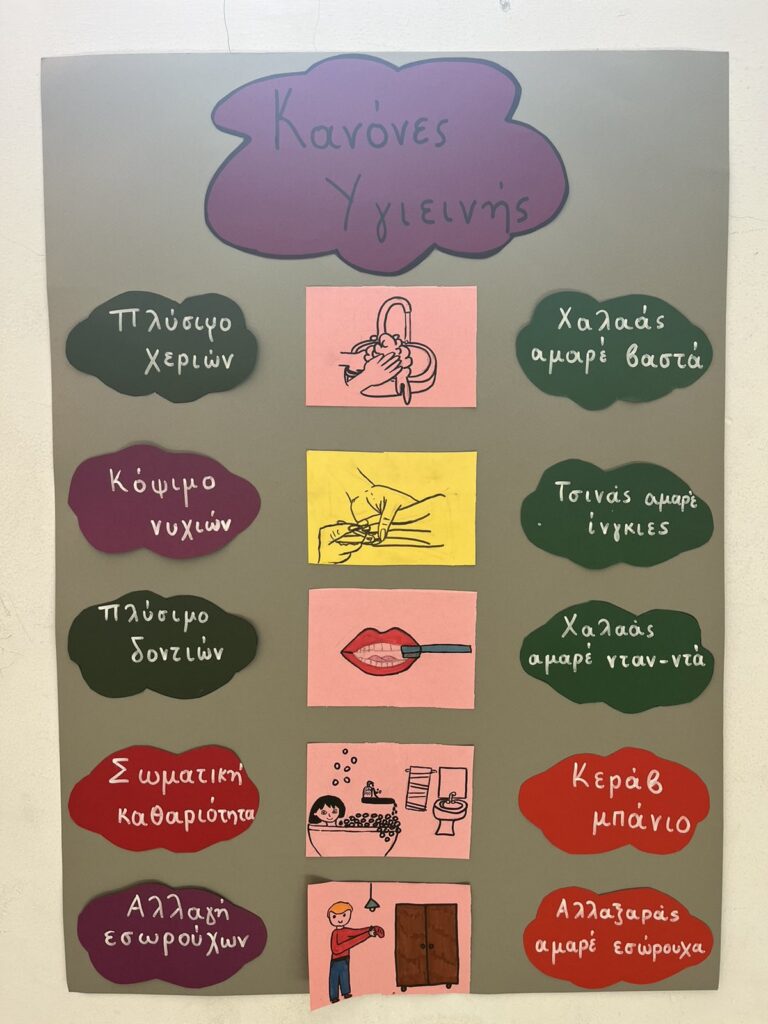 Κανόνες
Υγιεινής
Πλύσιμο
χεριών
Χαλαάς
αμαρέ βαστά
Κόψιμο
νυχιών
Τσινάς αμαρέ
ίνγκιες
Πλύσιμο
δοντιών
Χαλαάς
αμαρέ νταν-ντά
Σωματική
καθαριότητα
Κεράβ
μπάνιο
Αλλαγή
εσωρούχων
Αλλαξαράς
αμαρέ εσώρουχα